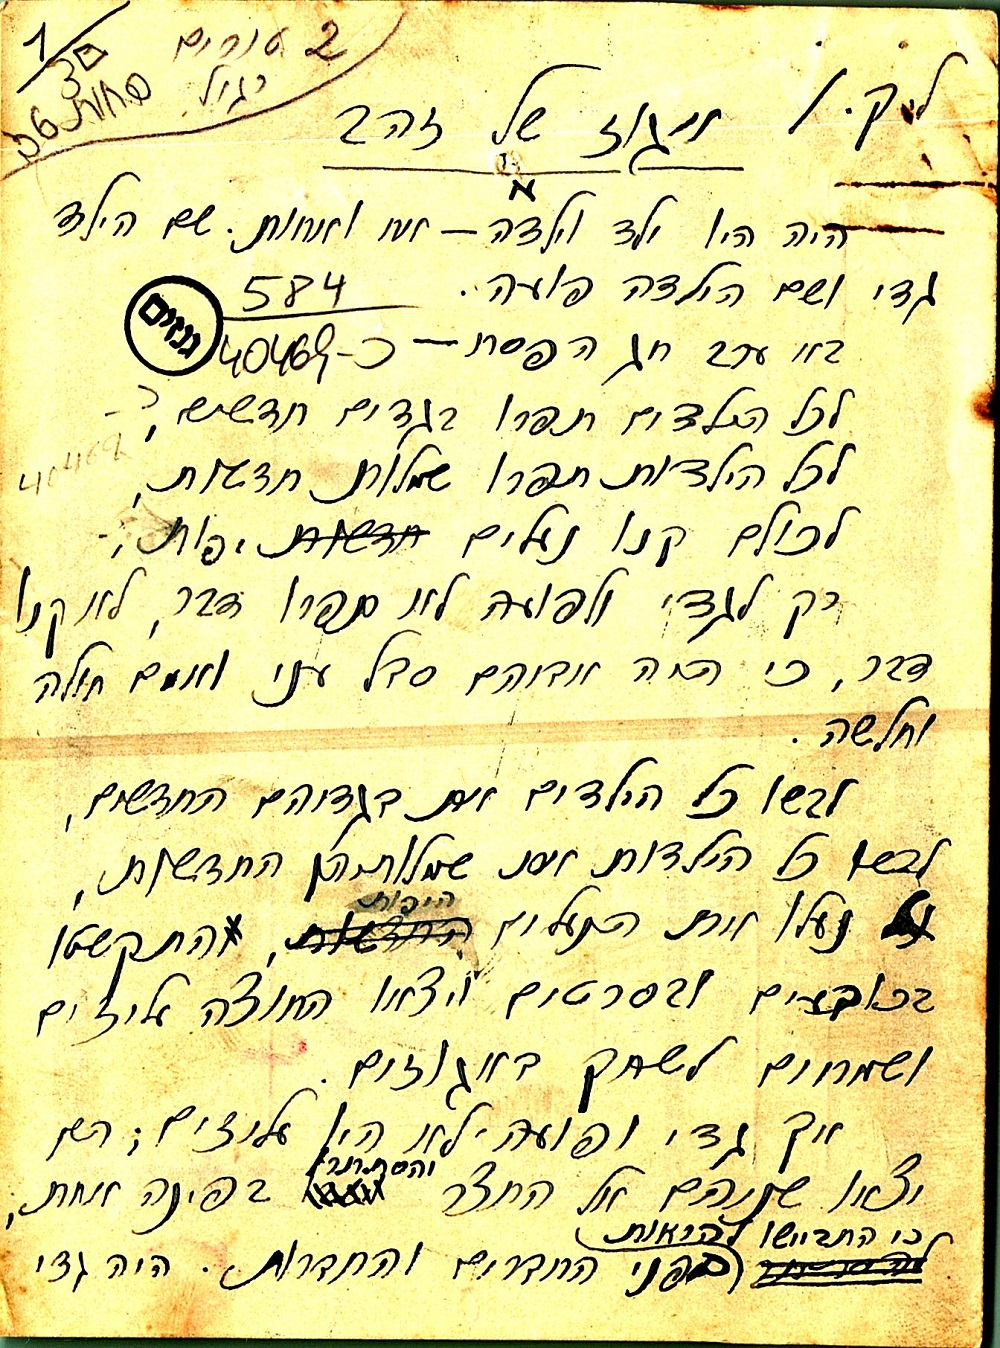 1/
2 טורים
רגיל
ל. ק. 1
אגוז של זהב
היה היו ילד וילדה – אח ואחות. שם הילד
גדי ושם הילדה פועה.
584
גנזים
40469-כ
בא ערב חג הפסח –
לכל הילדים תפרו בגדים חדשים,
לכל הילדות תפרו שמלות חדשות,
40469
לכולם קנו נעלים חדשות יפות,
רק לגדי ולפועה לא תפרו דבר, לא קנו
דבר, כי היה אביהם סבל עני ואמם חולה
וחלשה.
לבשו כל הילדים את בגדיהם החדשים,
לבשו כל הילדות את שמלותיהן החדשות,
היפות
נעלו את הנעלים החדשות, התקשטו
בכובעים ובסרטים ויצאו החוצה עליזים
ושמחים לשחק באגוזים.
אך גדי ופועה לא היו עליזים; הם
והסתתרו
יצאו שניהם אל החצר בפינה אחת,
כי התביישו להראות
בפני החברים והחברות. היה גדי